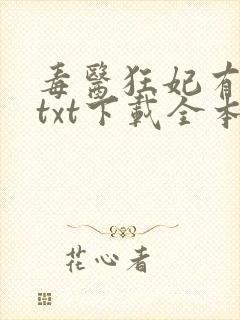 毒醫狂妃有
txt下載全本
花心者